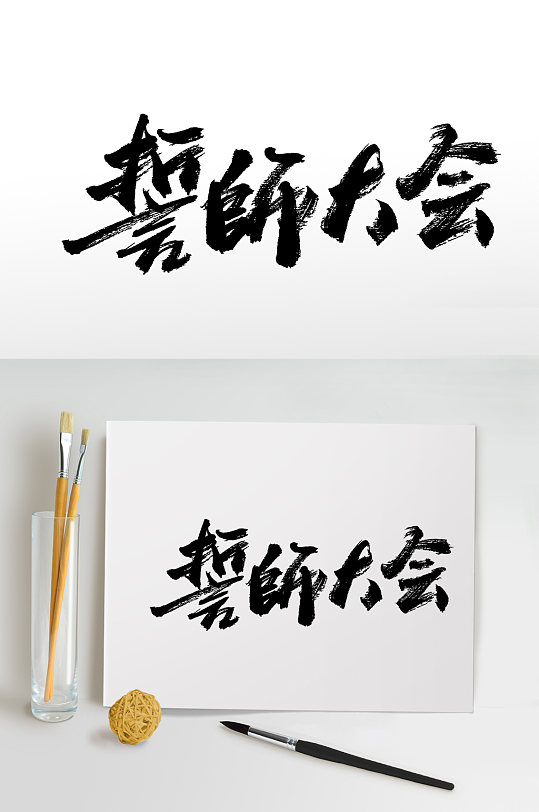 誓師大会
誓師大会